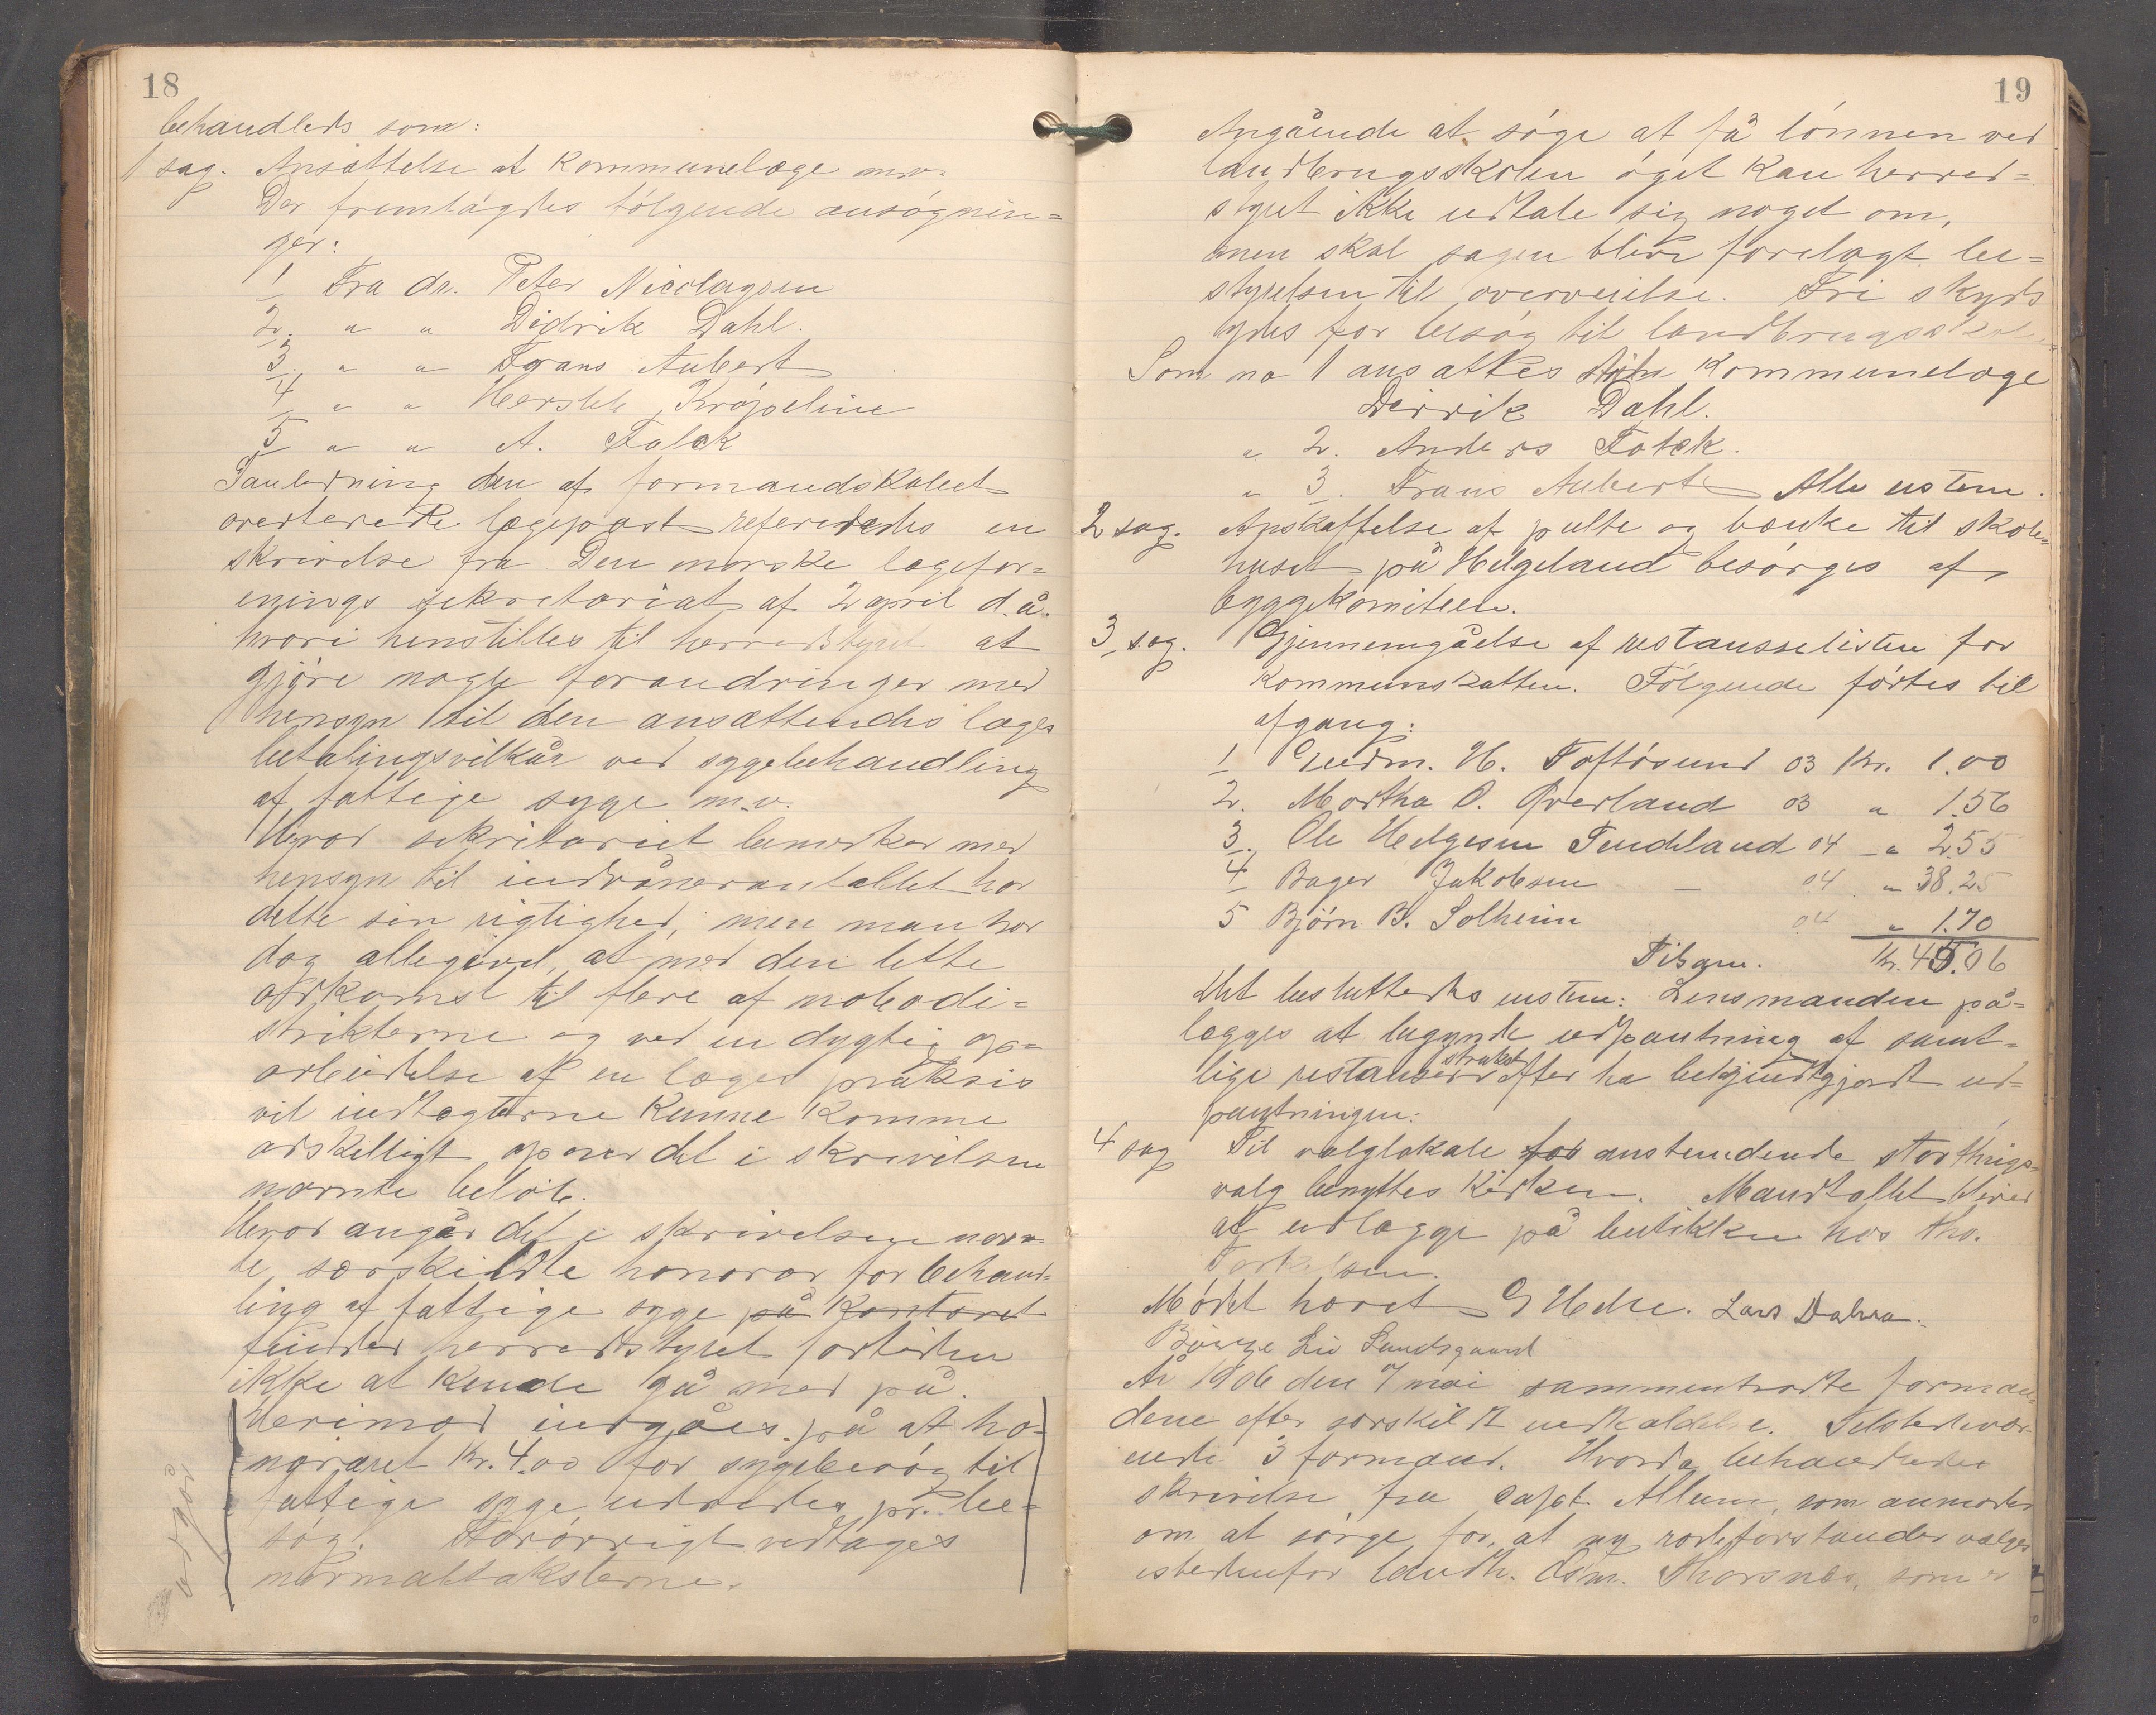 18
behandleds som:
1 sag. Ansættelse af kommunelæge m.v.
Der fremlagdes følgende ansøgnin=
ger:
1 Fra dr. Peter Nicolaysen
2. " " Didrik Dahl.
3. " " Frans Aubert
4 " " Hersleb Krøpeline
5 " " A. Falck
I anledning den af formandskabet
averterede lægepost refereredes en
skrivelse fra Den norske lægefor=
enings sekretariat af 2 april d.å.
hvori henstilles til herredstyret at
gjøre nogle forandringer med
hensyn til den ansættendes læges
betalingsvilkår ved sygebehandling
af fattige syge m.v.
Hvad sekritariet bemerker med
hensyn til indvånerantallet har
dette sin rigtighed, men man har
dog alligevel, at med den lette
adkomst til flere af nabodi=
strikterne og ved en dygtig op=
arbeidelse af en læges praksis
vil indtægterne kunne komme
adskelligt op over det i skrivelsen
nævnte beløb.
Hvad angår det i skrivelsen nævn=
te særskildte honorar for behand=
ling af fattige syge på kontoret
finder herredstyret fortiden
ikke at kunde gå med på.
Derimod indgåes på at ho=
noraret Kr. 4.00 for sygebesøg til
fattige syge udredes pr. be=
søg. Forøvrigt vedtages
normaltaksterne.
udgår
19
Angående at søge at få lønnen ved
landbrugsskolen øget kan herred=
styret ikke udtale sig noget om,
men skal sagen blive forelagt be=
styrelsen til overveielse. Fri skyds
ydes for besøg til landbrugsskolen
Som no 1 ansattes som kommunelæge
Didrik Dahl.
" 2. Anders Falck.
" 3. Frans Aubert Alle enstem.
2 sag. Anskaffelse af pulte og bænke til skole=
huset på Helgeland besørges af
byggekomiteen.
3 sag. Gjennemgåelse af restanselisten for
kommuneskatten. Følgende førtes til
afgang:
1 Gudm. H. Toftøsund 03 Kr. 1.00
2. Martha O. Øverland 03 " 1.56
3. Ole Helgesen Tendeland 04 " 2.55
4 Bager Jakobsen — 04 " 38.25
5 Bjørn B. Solheim 04 " 1.70
Tilsam. Kr. 45.06
Det besluttedes enstem: Lensmanden på=
lægges at begynde udpantning af samt=
lige restanser strakst efter ha bekjendtgjort ud=
pantningen.
4 sag Til valglokale for anstundende storthings=
valg benyttes kirken. Mandtallet bliver
at udlægge på butikken hos Tho.
Torkelsen.
Mødet hævet G Helle. Lars Dahva.
Børge Lie Sundsgaard
År 1906 den 7 mai sammentrådte forman=
dene efter særskildt nedkaldelse. Tilstedevær=
ende 3 formænd. Hvorda behandledes
skrivelse fra capt. Allum, som anmoder
om at sørge for, at ny rodeforstander vælges
istedenfor landh. Osm. Thorsnes, som er